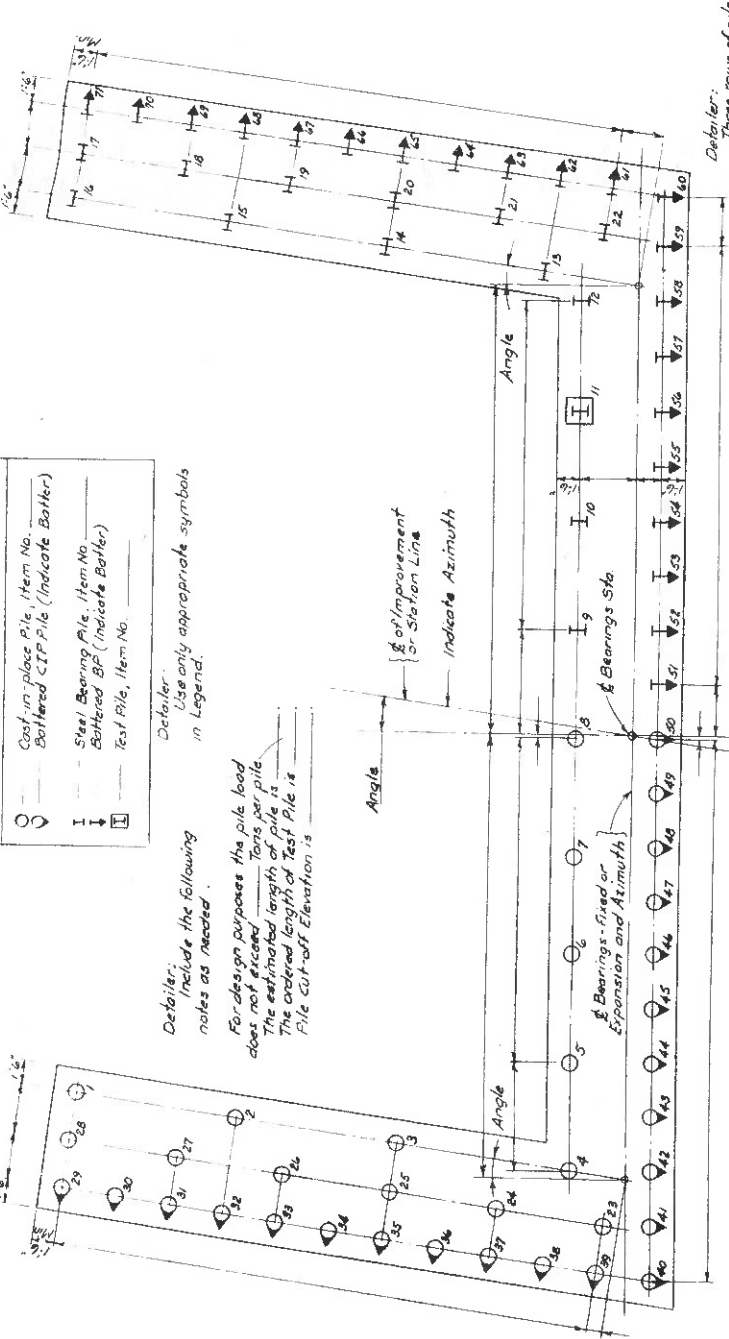 Cast-in-place Pile, Item No.
Battered CIP Pile (Indicate Batter)
Steel Bearing Pile, Item No.
Battered BP (Indicate Batter)
Test Pile, Item No.
Detailer:
Use only appropriate symbols
in Legend.
Detailer:
Include the following
notes as needed.
For design purposes the pile load
does not exceed Tons per pile
The estimated length of pile is
The ordered length of Test Pile is
Pile Cut-off Elevation is
Angle
℄ of Improvement
or Station Line
Indicate Azimuth
Angle
Angle
℄ Bearings Sta.
℄ Bearings-Fixed or
Expansion and Azimuth
Detailer:
1'-6"
1'-6"
1'-6"
Min.
1'-6"
1'-6"
Min.
1'-6"
1'-6"
1
2
3
4
5
6
7
8
9
10
11
12
13
14
15
16
17
18
19
20
21
22
23
24
25
26
27
28
29
30
31
32
33
34
35
36
37
38
39
40
41
42
43
44
45
46
47
48
49
50
51
52
53
54
55
56
57
58
59
60
61
62
63
64
65
66
67
68
69
70
71